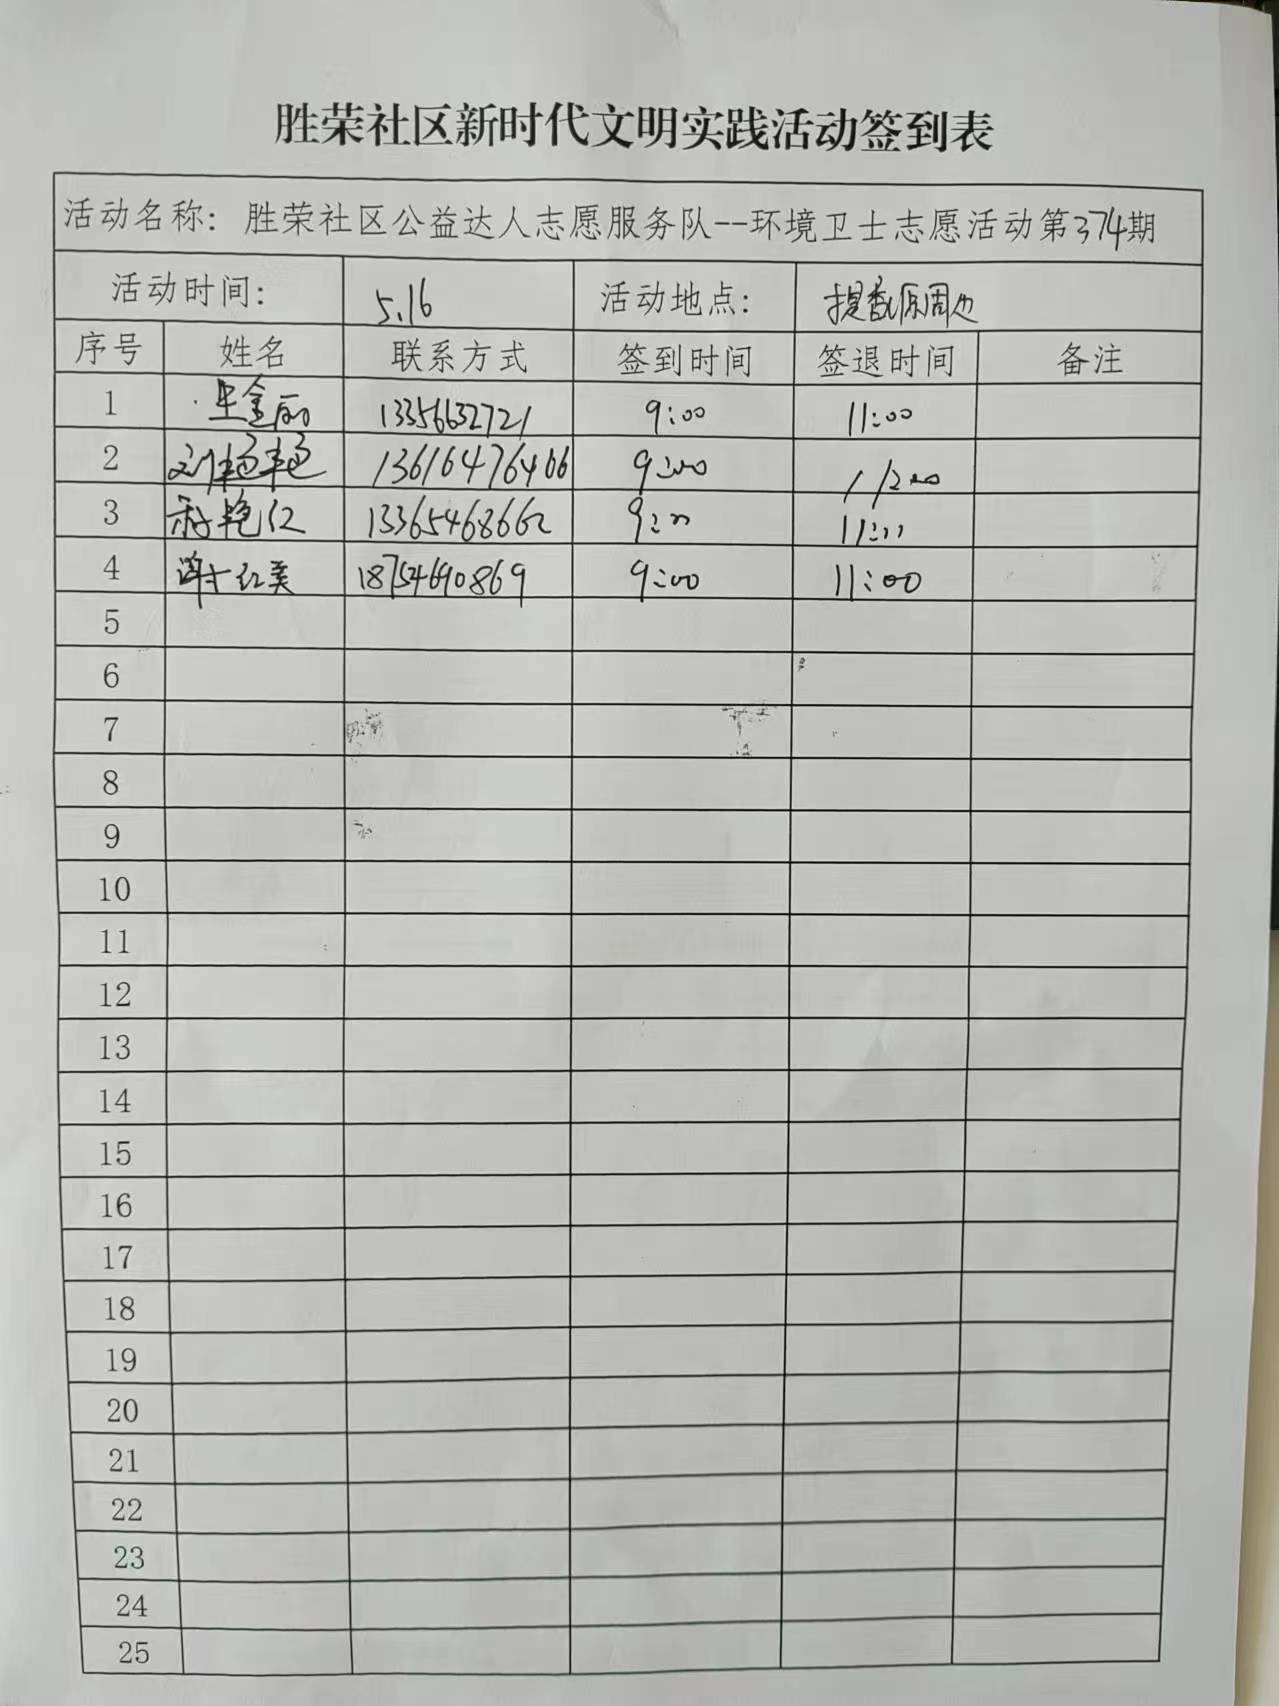 胜荣社区新时代文明实践活动签到表
活动名称：胜荣社区公益达人志愿服务队--环境卫士志愿活动第374期
活动时间： 5.16 活动地点： 周边
序号 姓名 联系方式 签到时间 签退时间 备注
1 金丽 13356632721 9:00 11:00
2 刘艳艳 13616476466 9:00 11:00
3 艳红 13365468662 9:00 11:00
4 谢红英 18754690869 9:00 11:00
5
6
7
8
9
10
11
12
13
14
15
16
17
18
19
20
21
22
23
24
25